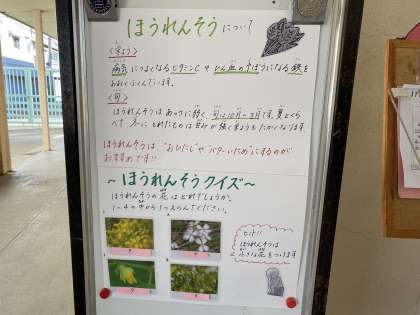 ほうれんそう について
〈栄よう〉
病気につよくなるビタミンCや ひん血の予ぼうになる鉄を
おおくふくんでいます。
〈旬〉
ほうれんそうは あつさに弱く、旬は10月〜3月です。夏とくら
べて 冬に とれたものは 甘みが 強く栄ようも たかくなります。
ほうれんそうは、"おひたし"や"バターいため"にするのが
おすすめです!!
〜ほうれんそうクイズ〜
ほうれんそうの花はどれでしょうか。
1〜4の中から1つえらんでください。
ヒント!
ほうれんそうは
小さな花をつけます